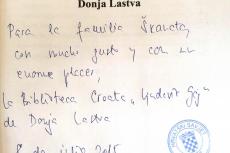 Donja Lastva
Para la familia Škaneta,
con mucho gusto y con un
enorme placer,
la Biblioteca Croata "Ljudevit Gaj"
de Donja Lastva
de julio 2015
HRVATSKI